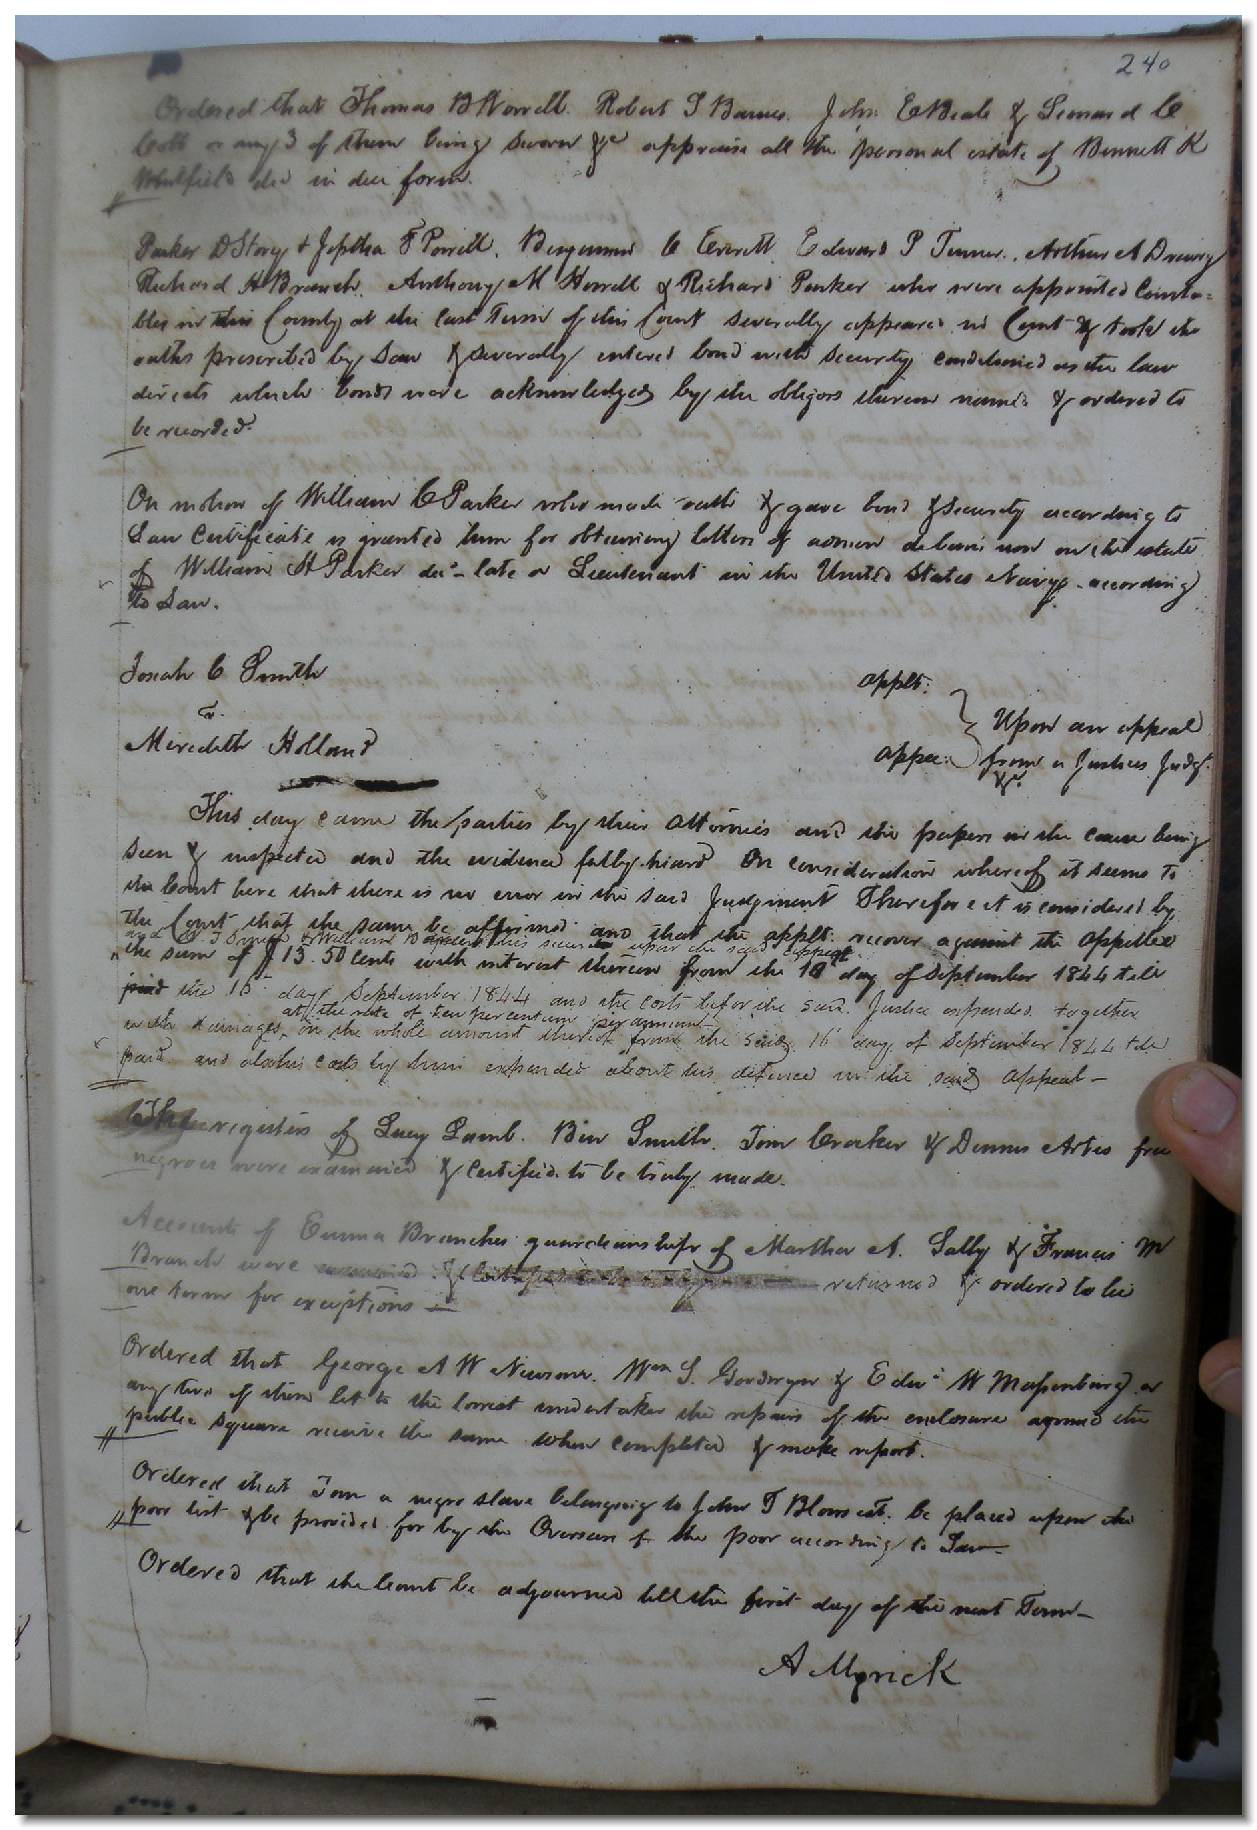 240
Ordered that Thomas B Worrell. Robert S Barnes. John E Beale & Leonard C
Cobb or any 3 of them being sworn &c appraise all the personal estate of Bennett K
Whitfield decd in due form.
Parker D Story & Jeptha F Powell. Benjamin C Everett. Edward P Turner. Arthur A Drewry
Richard H Branch. Anthony M Howell & Richard Parker who were appointed Consta=
bles in this County at the last Term of this Court severally appeared in Court & took the
oaths prescribed by Law & severally entered bond with security conditioned as the law
directs which bonds were acknowledged by the obligors therein named & ordered to
be recorded.
On motion of William C Parker who made oath & gave bond & security according to
Law Certificate is granted him for obtaining letters of admon de bonis non on the estate
of William H Parker decd - late a Lieutenant in the United States Navy - according
to Law.
Josiah C Smith applt.
vs. Upon an appeal
Meredith Holland appee. from a Justices Judgt.
&c
This day came the parties by their attornies and the papers in the cause being
seen & inspected and the evidence fully heard On consideration whereof it seems to
the Court here that there is no error in the said Judgment Therefore it is considered by
the Court that the same be affirmed and that the applt. recover against the appellee
and J. Smith & William B his upon the said appeal
the sum of $13.50 Cents with interest thereon from the day of September 1844 till
paid the 16 day September 1844 and the costs before the said Justice expended together
at the rate of ten per centum per annum
with damages on the whole amount thereof from the said 16 day of September 1844 till
paid and also his costs by him expended about his defence in the said appeal -
The registers of Lucy Lamb. Ben Smith. Tom Crocker & Dennis Artis free
negroes were examined & certified to be truly made.
Accounts of Emma Branches guardianship of Martha A. Sally & Francis M
Branch were examined & Certified to be returned & ordered to lie
one term for exceptions -
Ordered that George A W Newsom. Wm S. Goodwyn & Edwd W Massenburg or
any two of them let to the lowest undertaker the repairs of the enclosure around the
public square receive the same when completed & make report.
Ordered that Tom a negro slave belonging to John T Blow est. be placed upon the
poor list & be provided for by the Overseers of the poor according to Law -
Ordered that the Court be adjourned till the first day of the next Term -
A Myrick